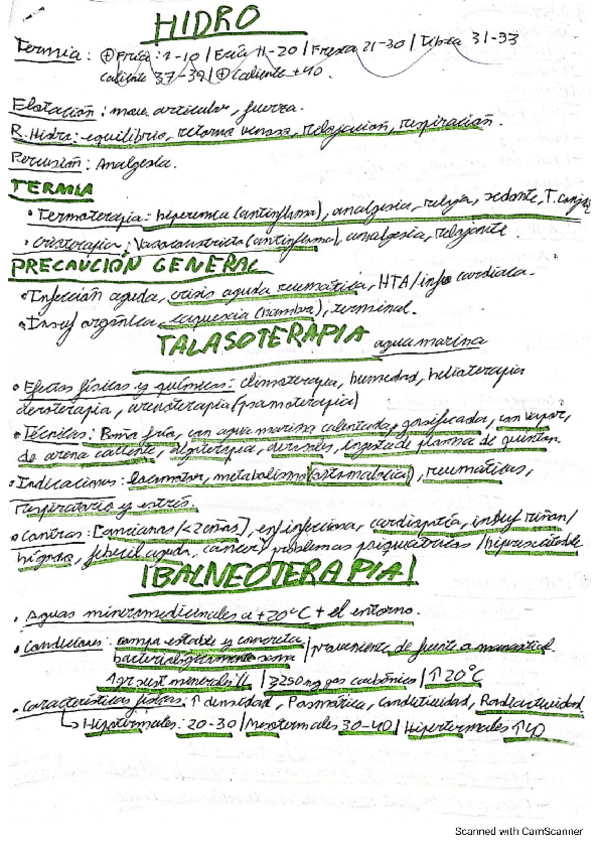 HIDRO
Termia: ⊕Fría: 1-10 | Fría 11-20 | Fresca 21-30 | Tibia 31-33
Caliente 37-39 | ⊕Caliente +40.
Flotación: mov. articular, fuerza.
P. Hidro: equilibrio, retorno venoso, relajación, respiración.
Percusión: Analgesia.
TERMIA
• Termoterapia: hiperemia (antinflama), analgesia, relaja, sedante, T. conj
• Crioterapia: Vasoconstricta (antinflama), analgesia, relajante.
PRECAUCIÓN GENERAL
• Infección aguda, crisis aguda reumática, HTA/ cardíaca.
• Insuf orgánica, caquexia (hambre), terminal.
TALASOTERAPIA agua marina
• Efectos físicos y químicos: climoterapia, humedad, helioterapia
aeroterapia, arenoterapia (psamoterapia)
• Técnicas: Baño frío, con agua marina calentada, gasificada, con vapor,
de arena caliente, algoterapia, aerosoles, ingesta de plasma de quinton.
• Indicaciones: locomotor, metabolismo, reumáticas,
respiratorio y estrés.
• Contras: [ancianos/<2 años], enf infecciosa, cardiopatía, insuf riñon/
hígado, febril aguda, cancer/ problemas psiquiatricos / hiperexcitable
¡BALNEOTERAPIA!
• Aguas mineromedicinales a +20°C + el entorno.
• Condiciones: compo estable y concreta | proveniente de fuente o manantial
bacteriológicamente sana
1gr sust minerales/L | 250mg gas carbónico | ↑20°C
• Características físicas: ↑densidad, Osmótica, conductividad, Radiactividad
↳ Hipotermales: 20-30 | Mesotermales 30-40 | Hipertermales ↑40
Scanned with CamScanner